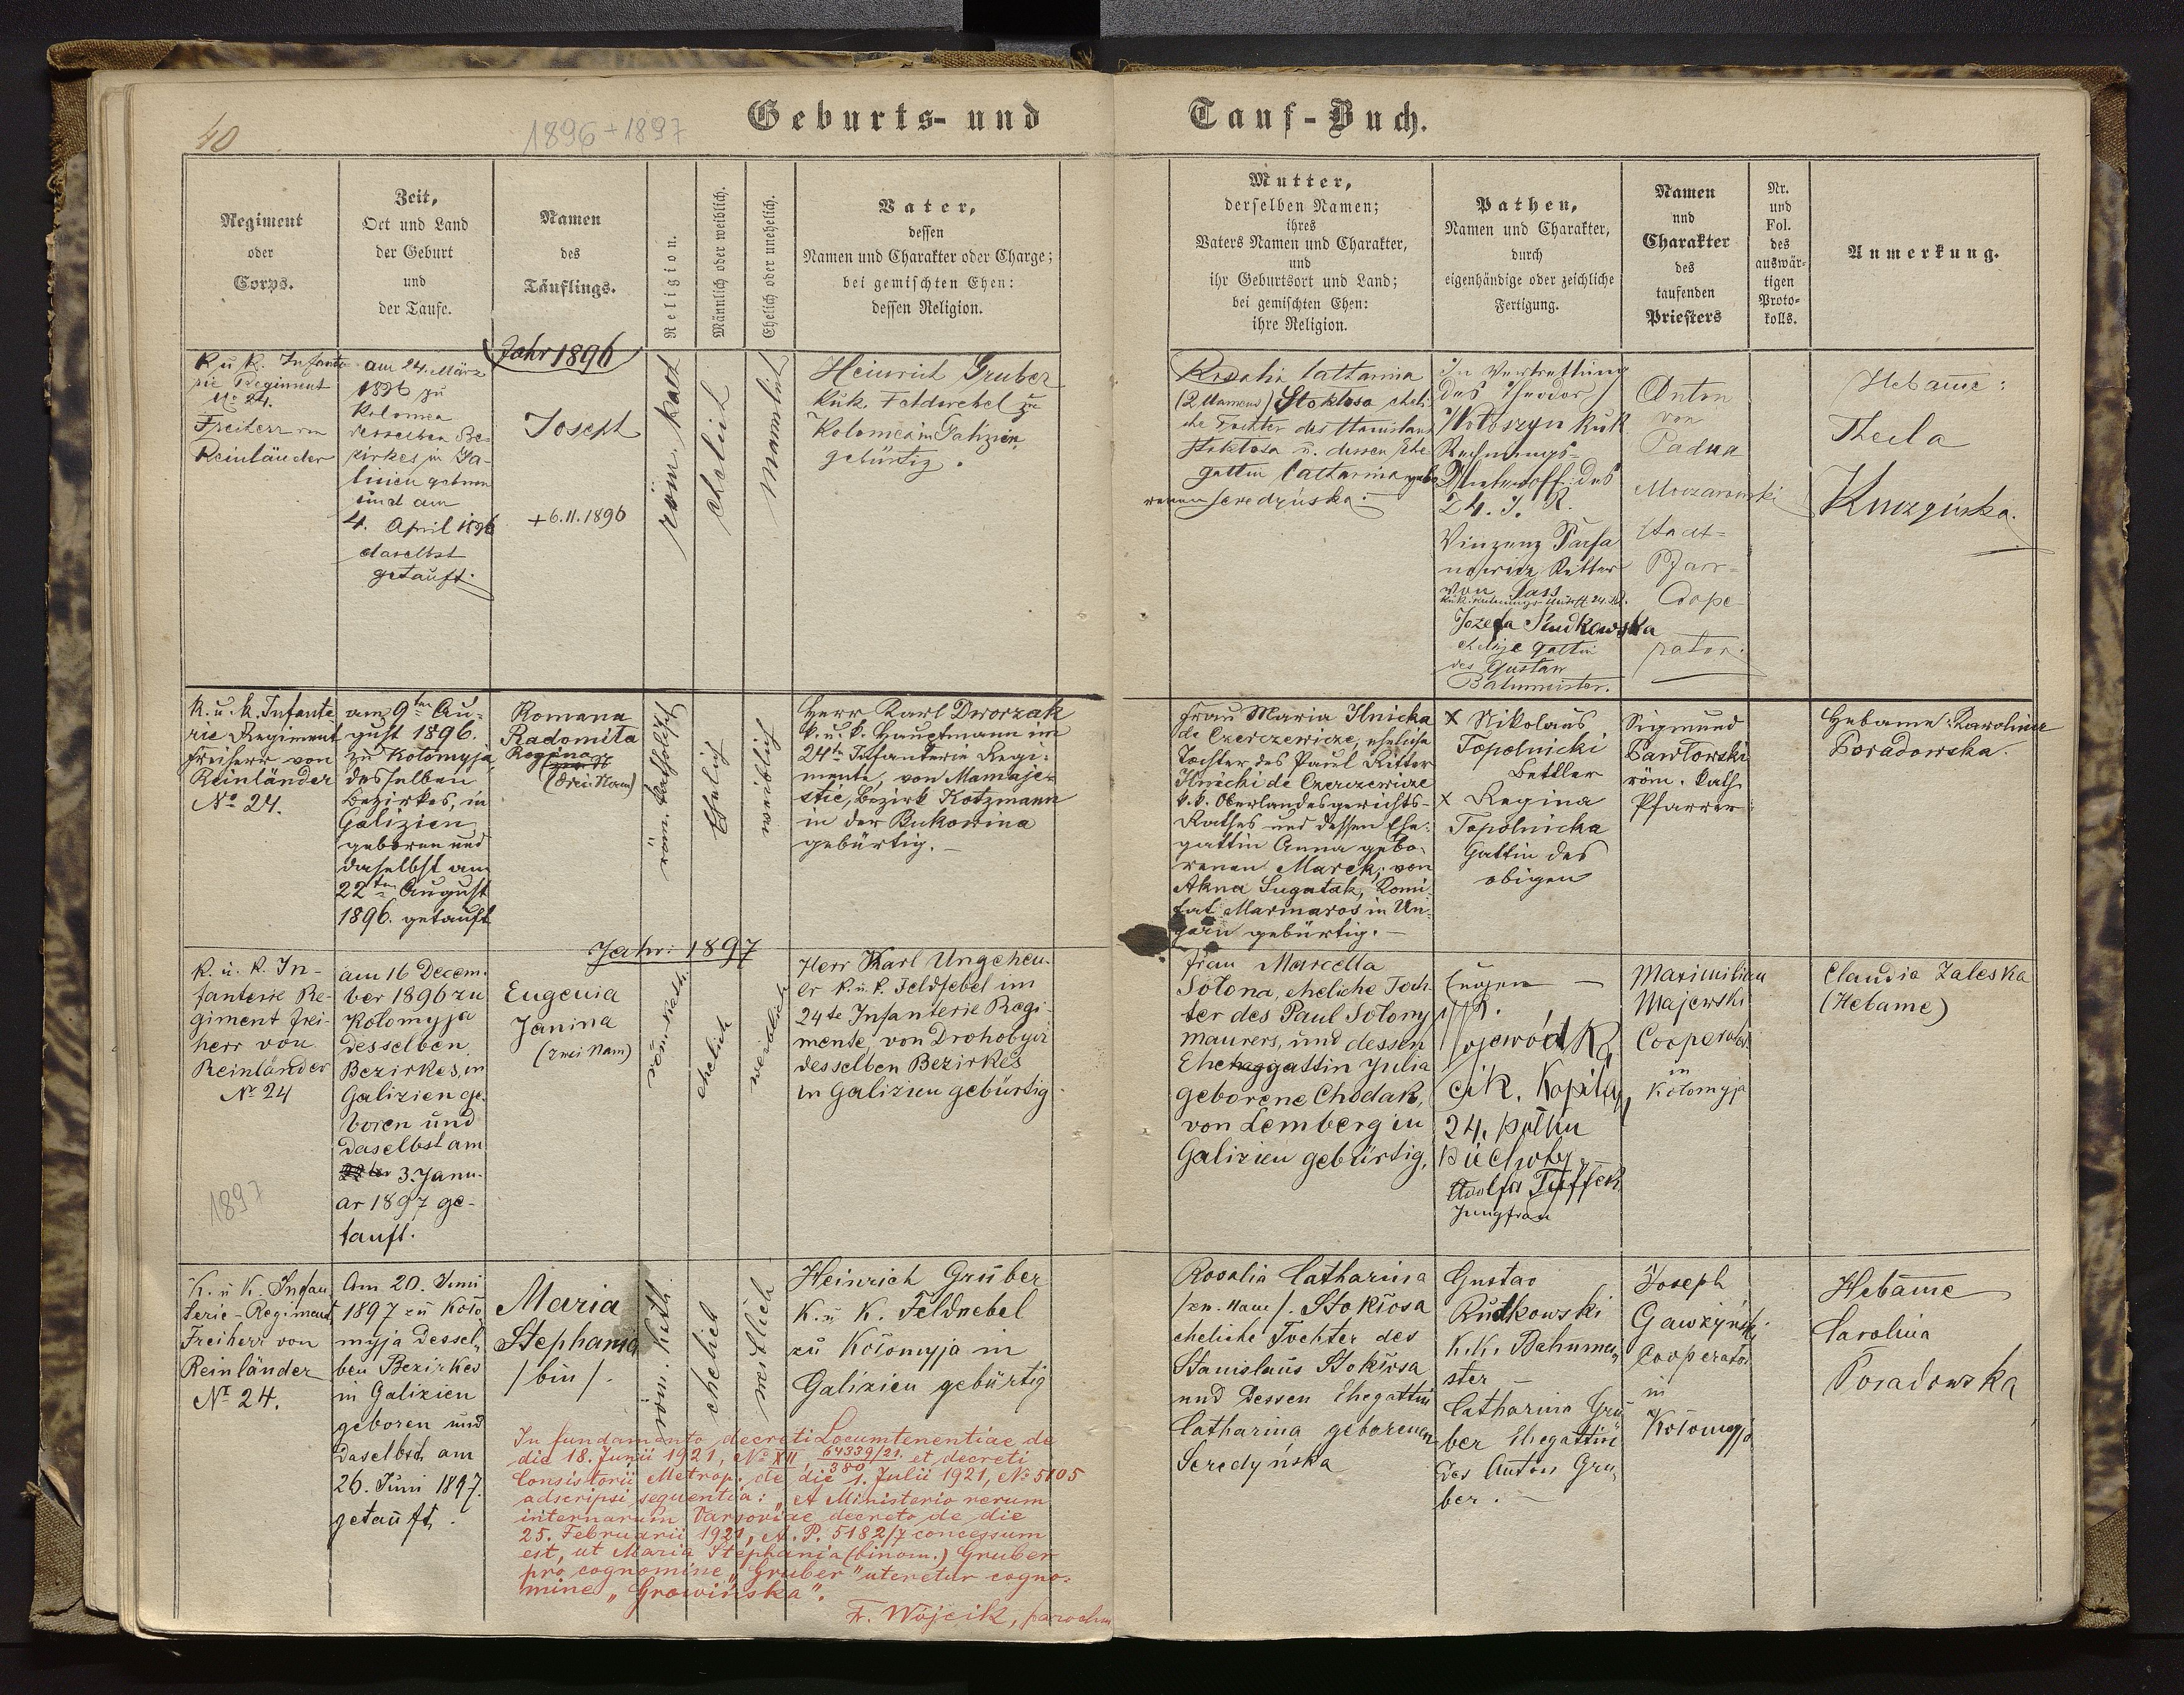 40
1896+1897
Geburts- und
Tauf-Buch.
Regiment
oder
Corps.
Zeit,
Ort und Land
der Geburt
und
der Taufe.
Namen
des
Täuflings.
Religion.
Männlich oder weiblich.
Ehelich oder unehelich.
Vater,
dessen
Namen und Charakter oder Charge;
bei gemischten Ehen:
dessen Religion.
Mutter,
derselben Namen;
ihres
Vaters Namen und Charakter,
und
ihr Geburtsort und Land;
bei gemischten Ehen:
ihre Religion.
Pathen,
Namen und Charakter,
durch
eigenhändige oder zeichliche
Fertigung.
Namen
und
Charakter
des
taufenden
Priesters
Nr.
und
Fol.
des
auswär-
tigen
Proto-
kolls.
Anmerkung.
Jahr 1896
K u K. Infante
rie Regiment
No 24.
Freiherr von
Reinländer
am 24. März
1896 zu
Kolomea
desselben Be-
zirkes in Ga-
lizien geboren
und am
4. April 1896
daselbst
getauft.
Joseph
+6.11.1896
röm. kath
ehelich
Mannlich
Heinrich Gruber
KuK. Feldwebel zu
Kolomea in Galizien
gebürtig.
Rosalia Catharina
(2 Namens) Stoktosa eheli-
che Tochter des Stanislaus
Stoktosa u. dessen Ehe
gattin Catharina gebo
renen Seredyńska.
In Vertrettung
des Theodor
Wołoszyn KuK
Rechnungs-
Unteroff. des
24. I. R.
Vinzenz
Ritter
von
Jozefa Rudkowska
eheliche Gattin
des Gustaw
Bahnmeister.
Anton
von
Padua
Stadt-
Pfarr-
Coope-
rator.
Hebame:
Thecla
K.u.K. Infante
rie Regiment
Freiherr von
Reinländer
No 24.
am 9ten Au-
gust 1896.
zu Kołomyja
desselben
Bezirkes, in
Galizien
geboren und
daselbst am
22ten August
1896. getauft
Romana
Radomiła
Regina
(Drei Nam)
röm. katholisch
Ehelich
weiblich
Herr Karl Dworzak
k. u. k. Hauptmann im
24ten Infanterie Regi-
mente, von Mamaje-
stie, Bezirk Kotzmann
in der Bukowina
gebürtig. –
Frau Maria Ilnicka
de Czerczewicze, eheliche
Tochter des Paul Ritter
Ilnicki de Czerczewicze
k. k. Oberlandesgerichts-
Rathes und dessen Ehe-
gattin Anna gebo-
renen Marek, von
Akna Sugatak, Komi
tat Marmaros in Un-
garn gebürtig. –
X Nikolaus
Topolnicki
Bettler
X Regina
Topolnicka
Gattin des
obigen
Sigmund
Pawłowski
röm. kath
Pfarrer
Hebame Karolina
Poradowska.
Jahr: 1897
K. u. K. In-
fanterie Re-
giment Frei-
herr von
Reinländer
No 24
1897
am 16 Decem-
ber 1896 zu
Kołomyja
desselben
Bezirkes, in
Galizien ge-
boren und
daselbst am
3. Janu-
ar 1897 ge-
tauft.
Eugenia
Janina
(zwei Nam)
röm. kath.
ehelich
weiblich
Herr Karl Ungeheu-
er k. u. k. Feldwebel im
24te Infanterie Regi-
mente, von Drohobycz
desselben Bezirkes
in Galizien gebürtig
Frau Marcella
Sołona, eheliche Toch-
ter des Paul Sołony
maurers, und dessen
Ehegattin Julia
geborene Chodak,
von Lemberg in
Galizien gebürtig.
Eugen –
24. pułku
piechoty
Jungfrau
Maximilian
Majewski
Cooperator
in
Kołomyja
Claudia Zaleska
(Hebame)
K. u K. Infan
terie-Regiment
Freiherr von
Reinländer
No 24.
Am 20. Juni
1897 zu Koło
myja dessel-
ben Bezirkes
in Galizien
geboren und
daselbst am
26. Juni 1897.
getauft.
Maria
Stephania
/bin/.
röm. kath.
ehelich
weiblich
Heinrich Gruber
K. u K. Feldwebel
zu Kołomyja in
Galizien gebürtig
Rosalia Catharina
/zn. Name/. Stokłosa
eheliche Tochter des
Stanislaus Stokłosa
und dessen Ehegattin
Catharina geborenen
Seredyńska
Gustav
Rudkowski
K.K. Bahnmei-
ster –
Catharina Gru
ber Ehegattin
des Anton Gru-
ber. –
Joseph
Gawżyński
Cooperator
in
Kołomyja
Hebame
Carolina
Poradowska
In fundamento decreti Locumtenentiae de
die 18. Junii 1921, No XII, 64339/21. / 380 et decreti
Consistorii Metrop. de die 1. Julii 1921, No 5105
adscripsi sequentia: „A Ministerio rerum
internarum Varsoviae decreto de die
25. Februarii 1921, A. P. 5182/7 concessum
est, ut Maria Stephania (binom.) Gruber
pro cognomine „Gruber" uteretur cogno-
mine „Growińska".
F. Wójcik, parochus